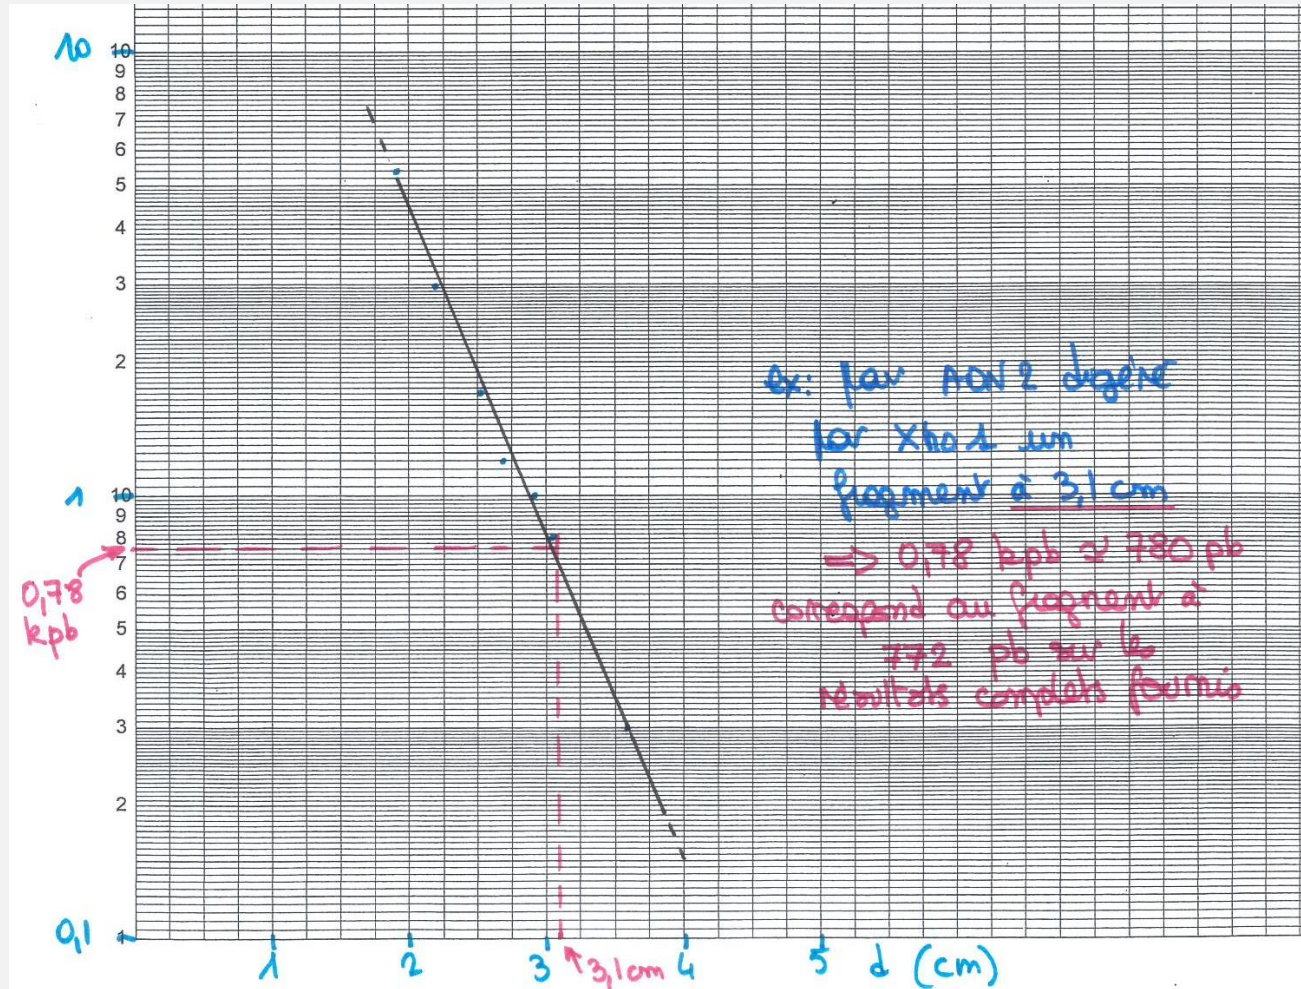 10
10
9
8
7
6
5
4
3
2
1
10
9
8
7
6
5
4
3
2
0,1
1
0,78
kpb
1
2
3
3,1cm
4
5
d (cm)
ex: pour ADN 2 digéré
par Xho 1 un
fragment à 3,1 cm
=> 0,78 kpb ≈ 780 pb
correspond au fragment à
772 pb sur les
résultats complets fournis